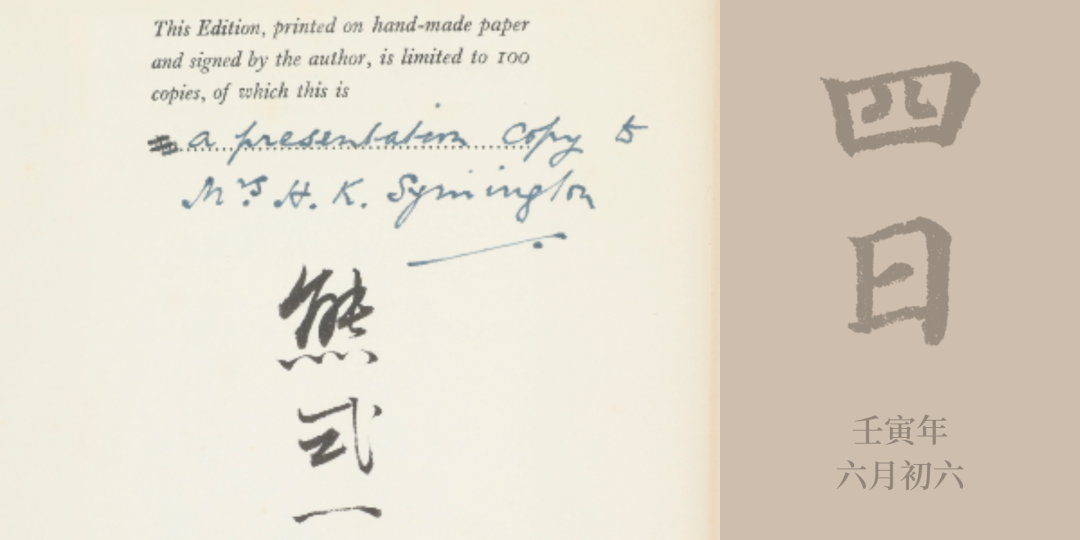 This Edition, printed on hand-made paper
and signed by the author, is limited to 100
copies, of which this is
a presentation copy to
Mrs H. K. Symington
熊式一
四日
壬寅年
六月初六